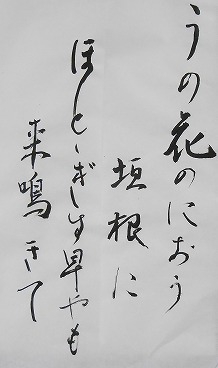 うの花のにおう
垣根に
ほとゝぎす早やも
来鳴きて